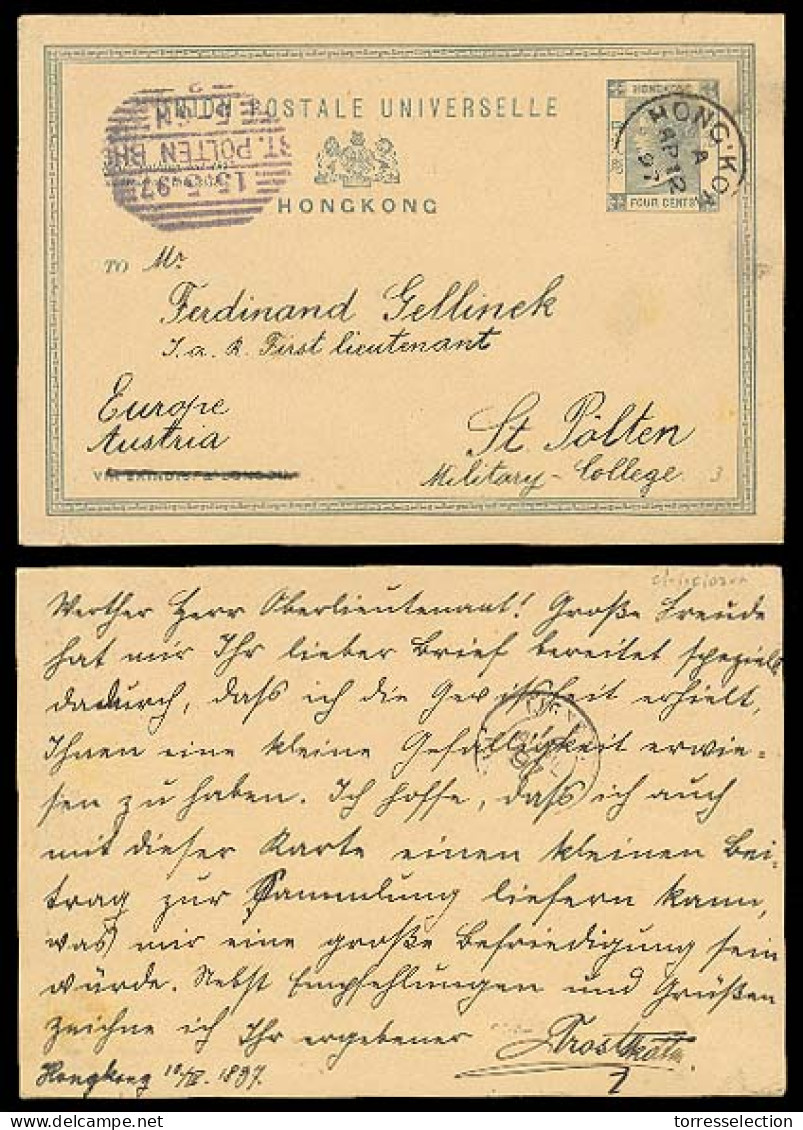 POSTALE UNIVERSELLE
HONGKONG
HONGKONG
FOUR CENTS
HONG·KO
A
AP 12
97
ST. POLTEN BH
15 5 97
TO Mr
Ferdinand Gellinek
I. a. R. First lieutenant
Europe
Austria
St Pölten
Military-College
3
Werther Herr Oberlieutenant! Große Freude
hat mir Ihr lieber Brief bereitet speziell
dadurch, dass ich die Gewissheit erhielt,
Ihnen eine kleine Gefälligkeit erwie-
sen zu haben. Ich hoffe, dass ich auch
mit dieser Karte einen kleinen Bei-
trag zur Sammlung liefern kann,
was mir eine große Befriedigung sein
würde. Nebst Empfehlungen und Grüßen
zeichne ich Ihr ergebener
Hongkong 10/IV. 1897.
www.torresselection.com